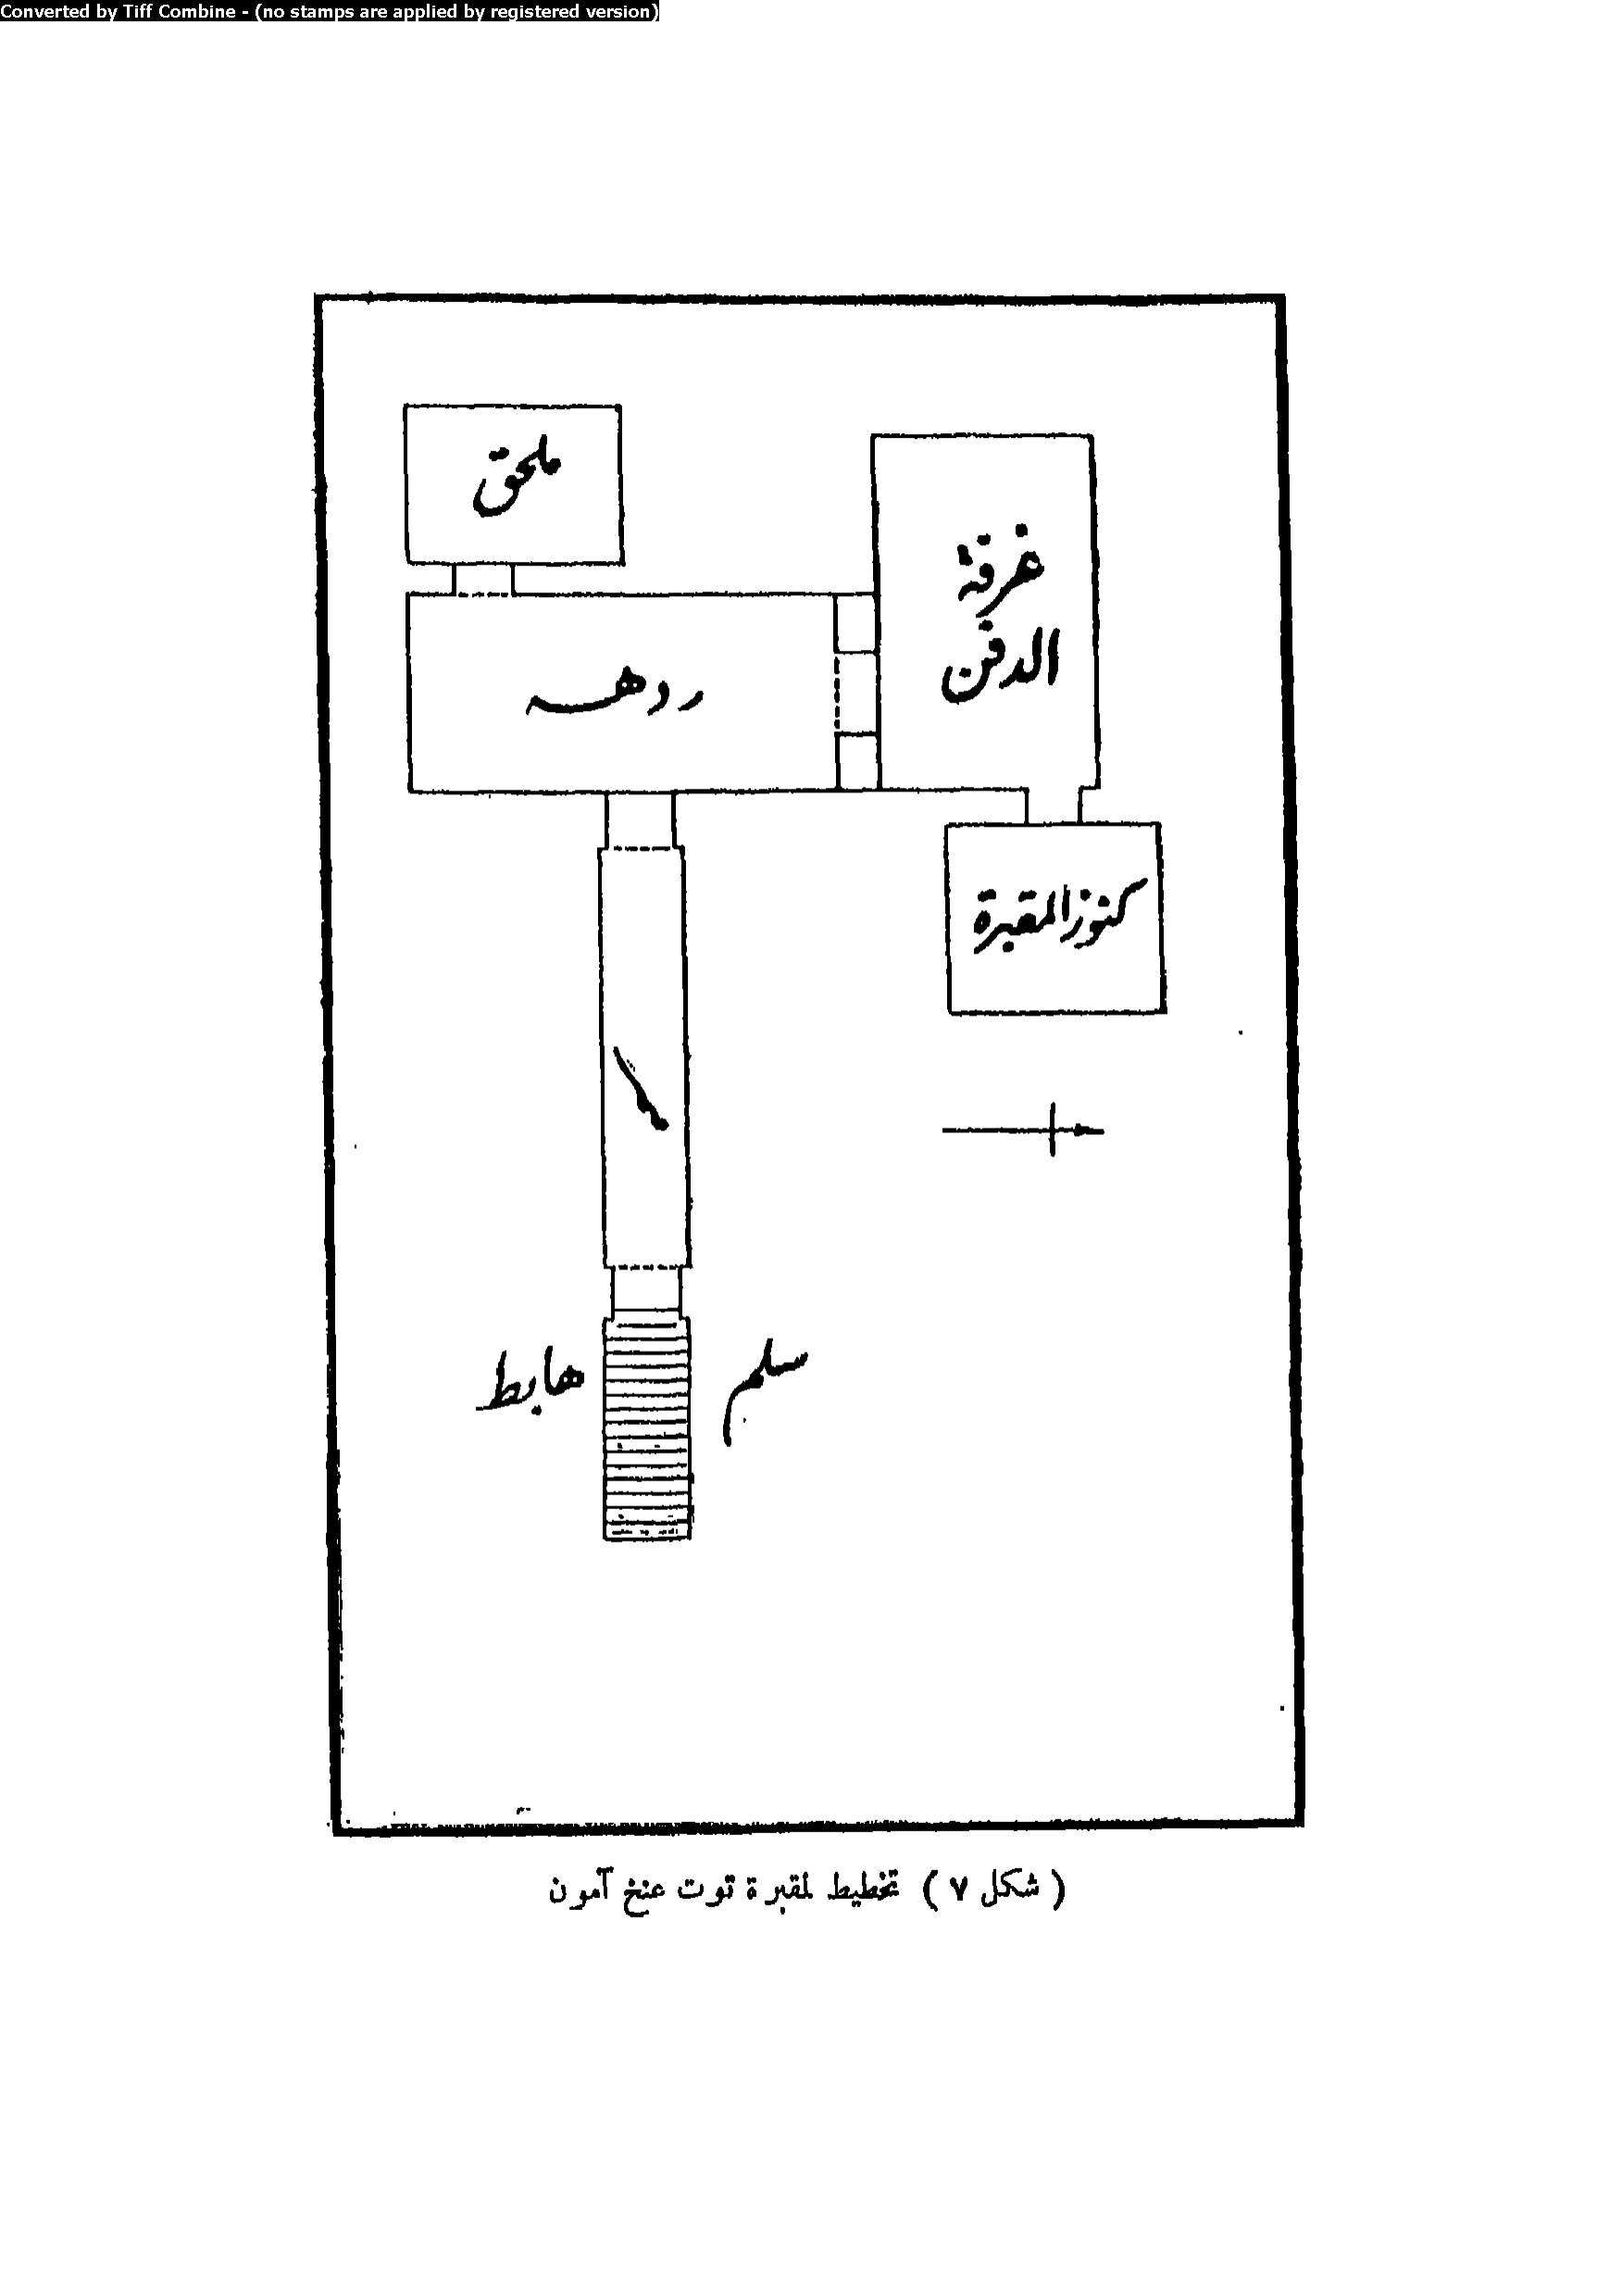 Converted by Tiff Combine - (no stamps are applied by registered version)
ملحق
غرفة
الدفن
ردهه
كنوز المقبرة
ممر
سلم هابط
( شكل ٧ ) تخطيط لمقبرة توت عنخ آمون